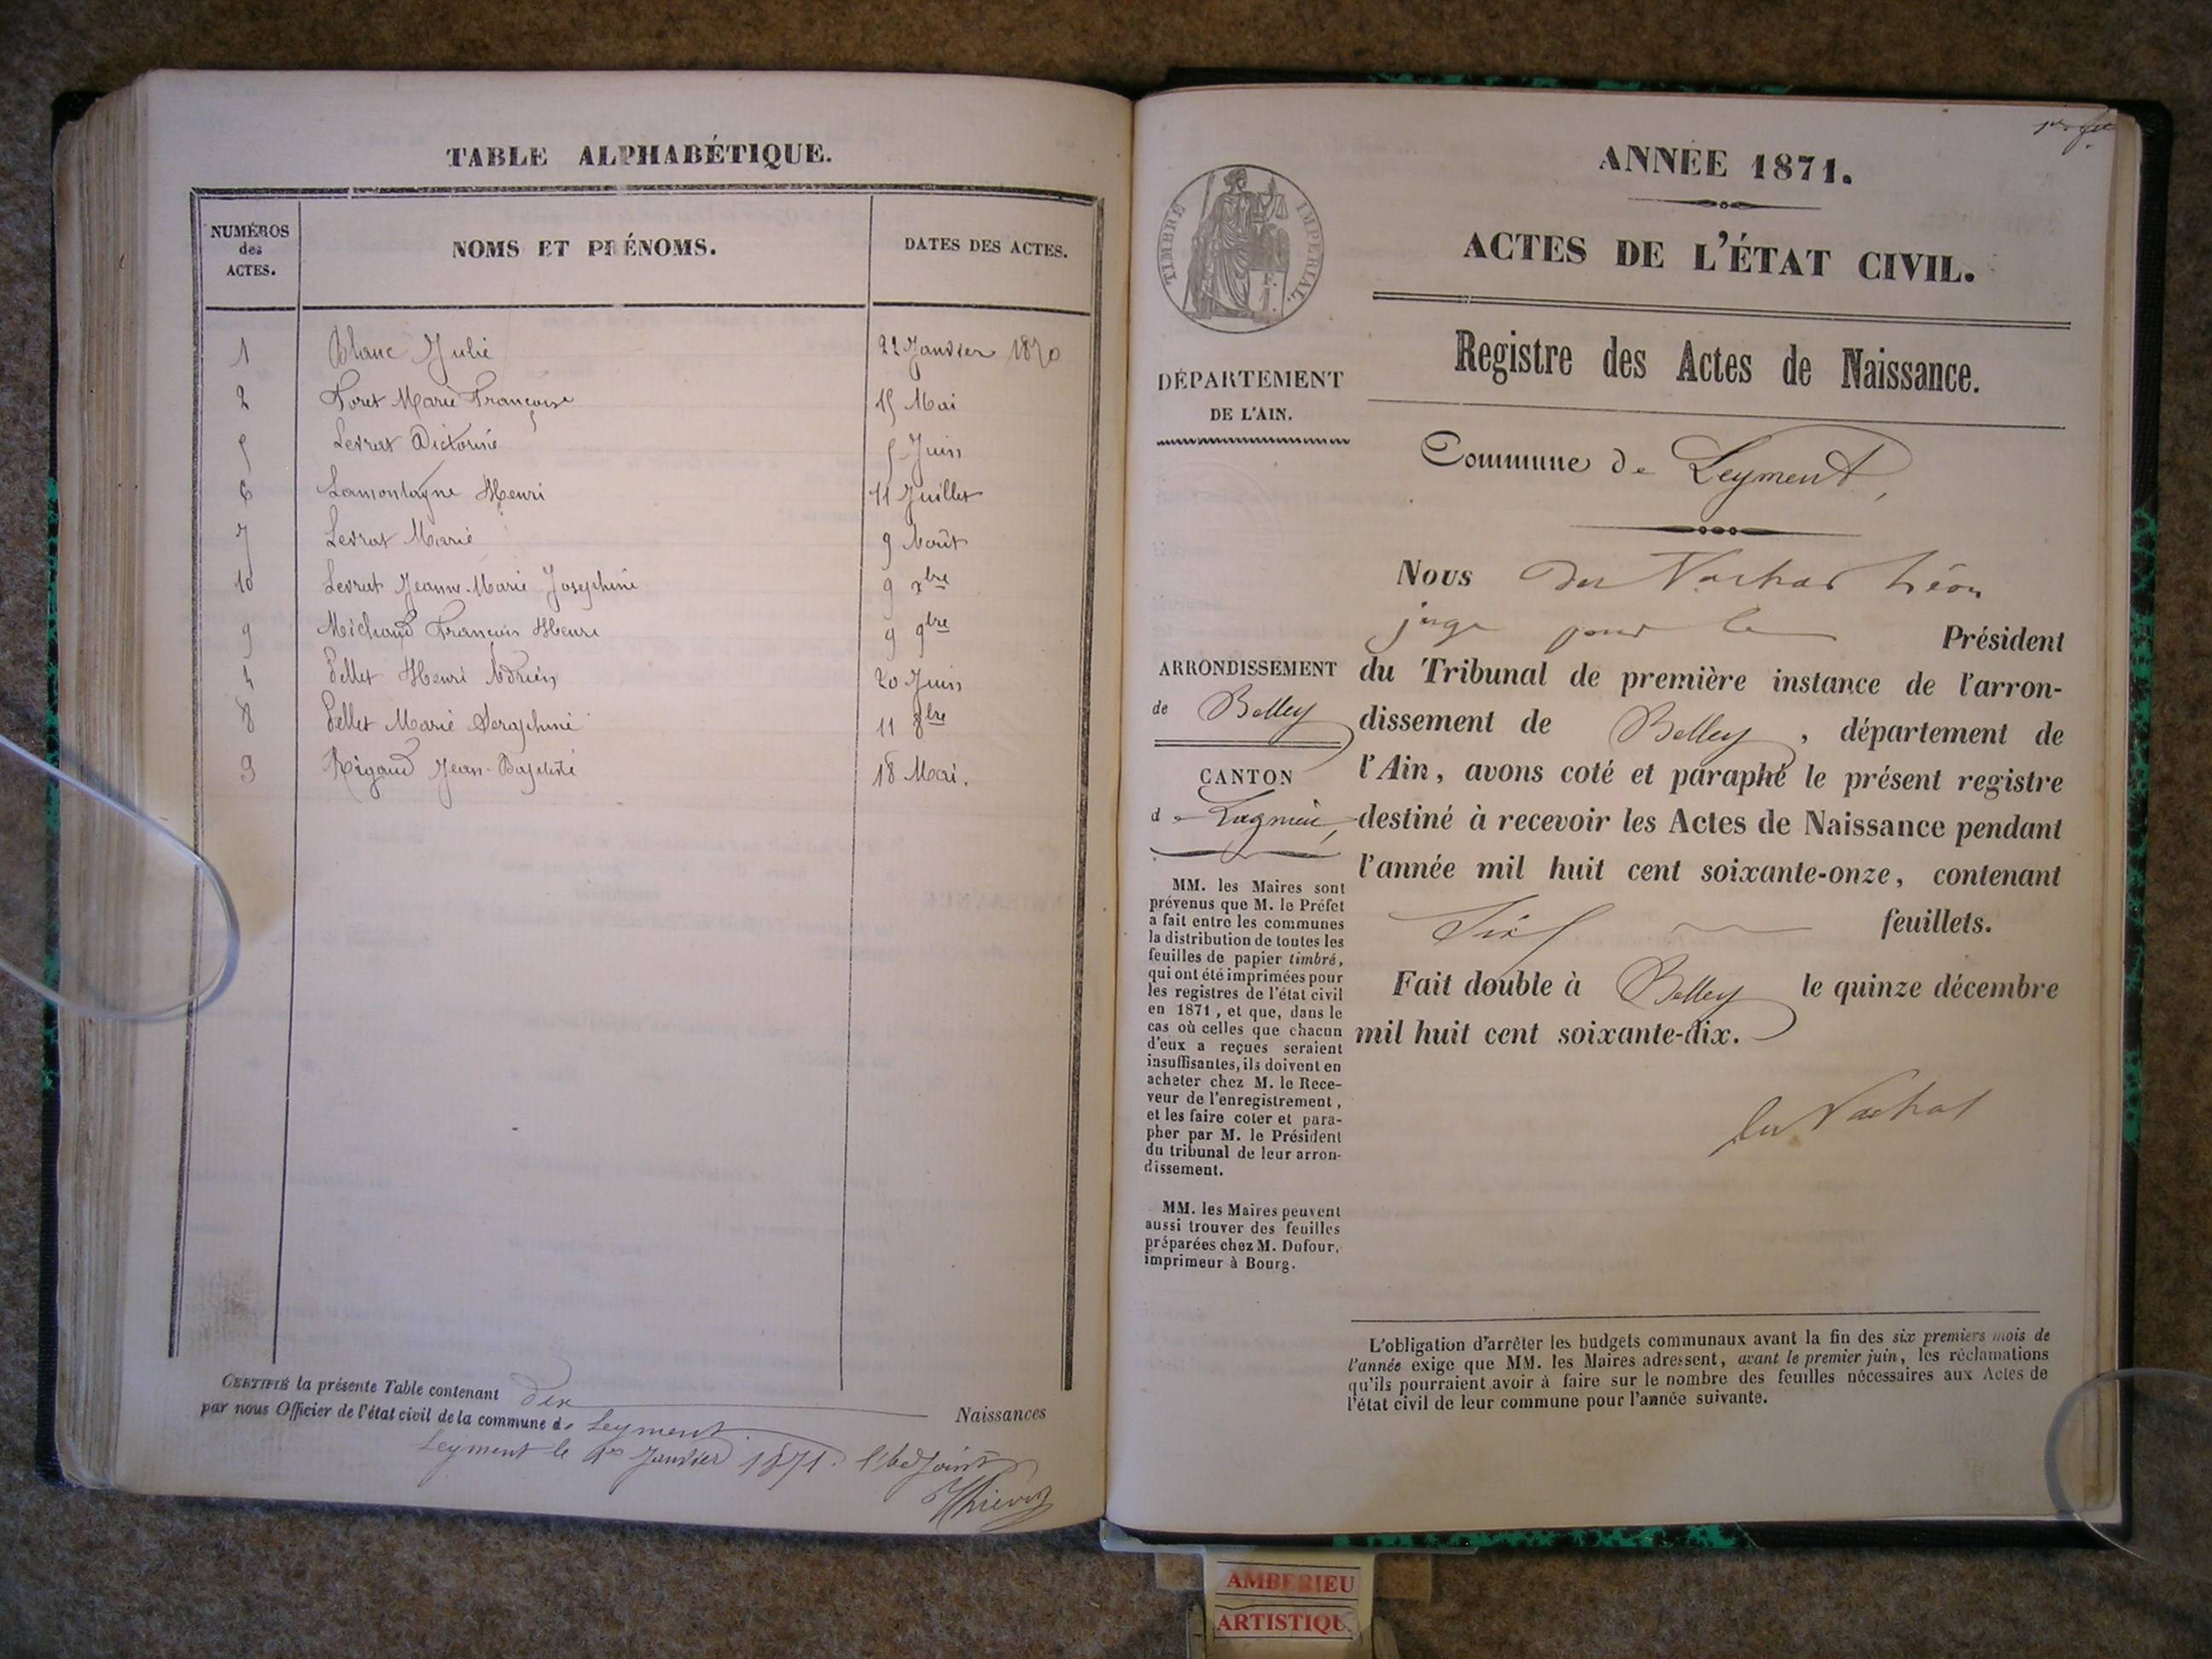 TABLE ALPHABÉTIQUE.
NUMÉROS des ACTES.
NOMS ET PRÉNOMS.
DATES DES ACTES.
1 Blanc Julie 22 Janvier 1870
2 Foret Marie Françoise 15 Mai
5 Levrat Victorine 5 Juin
6 Lamontagne Henri 11 Juillet
7 Levrat Marie 9 Août
10 Levrat Jeanne-Marie Josephine 9 xbre
9 Michaud François Henri 9 9bre
4 Pellet Henri Adrien 20 Juin
8 Pellet Marie Seraphine 11 8bre
3 Rigaud Jean-Baptiste 18 Mai.
CERTIFIÉ la présente Table contenant dix Naissances
par nous Officier de l'état civil de la commune de Leyment
Leyment le 1er Janvier 1871. l'Adjoint
ANNÉE 1871.
ACTES DE L'ÉTAT CIVIL.
Registre des Actes de Naissance.
Commune de Leyment,
TIMBRE IMPÉRIAL.
DÉPARTEMENT
DE L'AIN.
ARRONDISSEMENT
de Belley
CANTON
de Lagnieu,
MM. les Maires sont
prévenus que M. le Préfet
a fait entre les communes
la distribution de toutes les
feuilles de papier timbré,
qui ont été imprimées pour
les registres de l'état civil
en 1871, et que, dans le
cas où celles que chacun
d'eux a reçues seraient
insuffisantes, ils doivent en
acheter chez M. le Rece-
veur de l'enregistrement,
et les faire coter et para-
pher par M. le Président
du tribunal de leur arron-
dissement.
MM. les Maires peuvent
aussi trouver des feuilles
préparées chez M. Dufour,
imprimeur à Bourg.
Nous du Vachat Léon
juge pour le Président
du Tribunal de première instance de l'arron-
dissement de Belley, département de
l'Ain, avons coté et paraphé le présent registre
destiné à recevoir les Actes de Naissance pendant
l'année mil huit cent soixante-onze, contenant
Six feuillets.
Fait double à Belley le quinze décembre
mil huit cent soixante-dix.
du Vachat
L'obligation d'arrêter les budgets communaux avant la fin des six premiers mois de
l'année exige que MM. les Maires adressent, avant le premier juin, les réclamations
qu'ils pourraient avoir à faire sur le nombre des feuilles nécessaires aux Actes de
l'état civil de leur commune pour l'année suivante.
AMBERIEU
ARTISTIQU